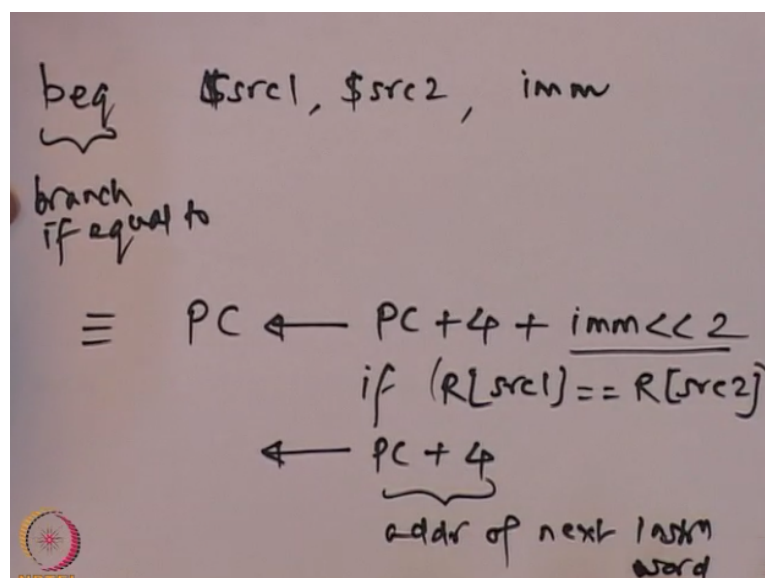 beq $src1, $src2, imm
branch
if equal to
≡ PC ← PC + 4 + imm << 2
if (R[src1] == R[src2]
← PC + 4
addr of next instn
word